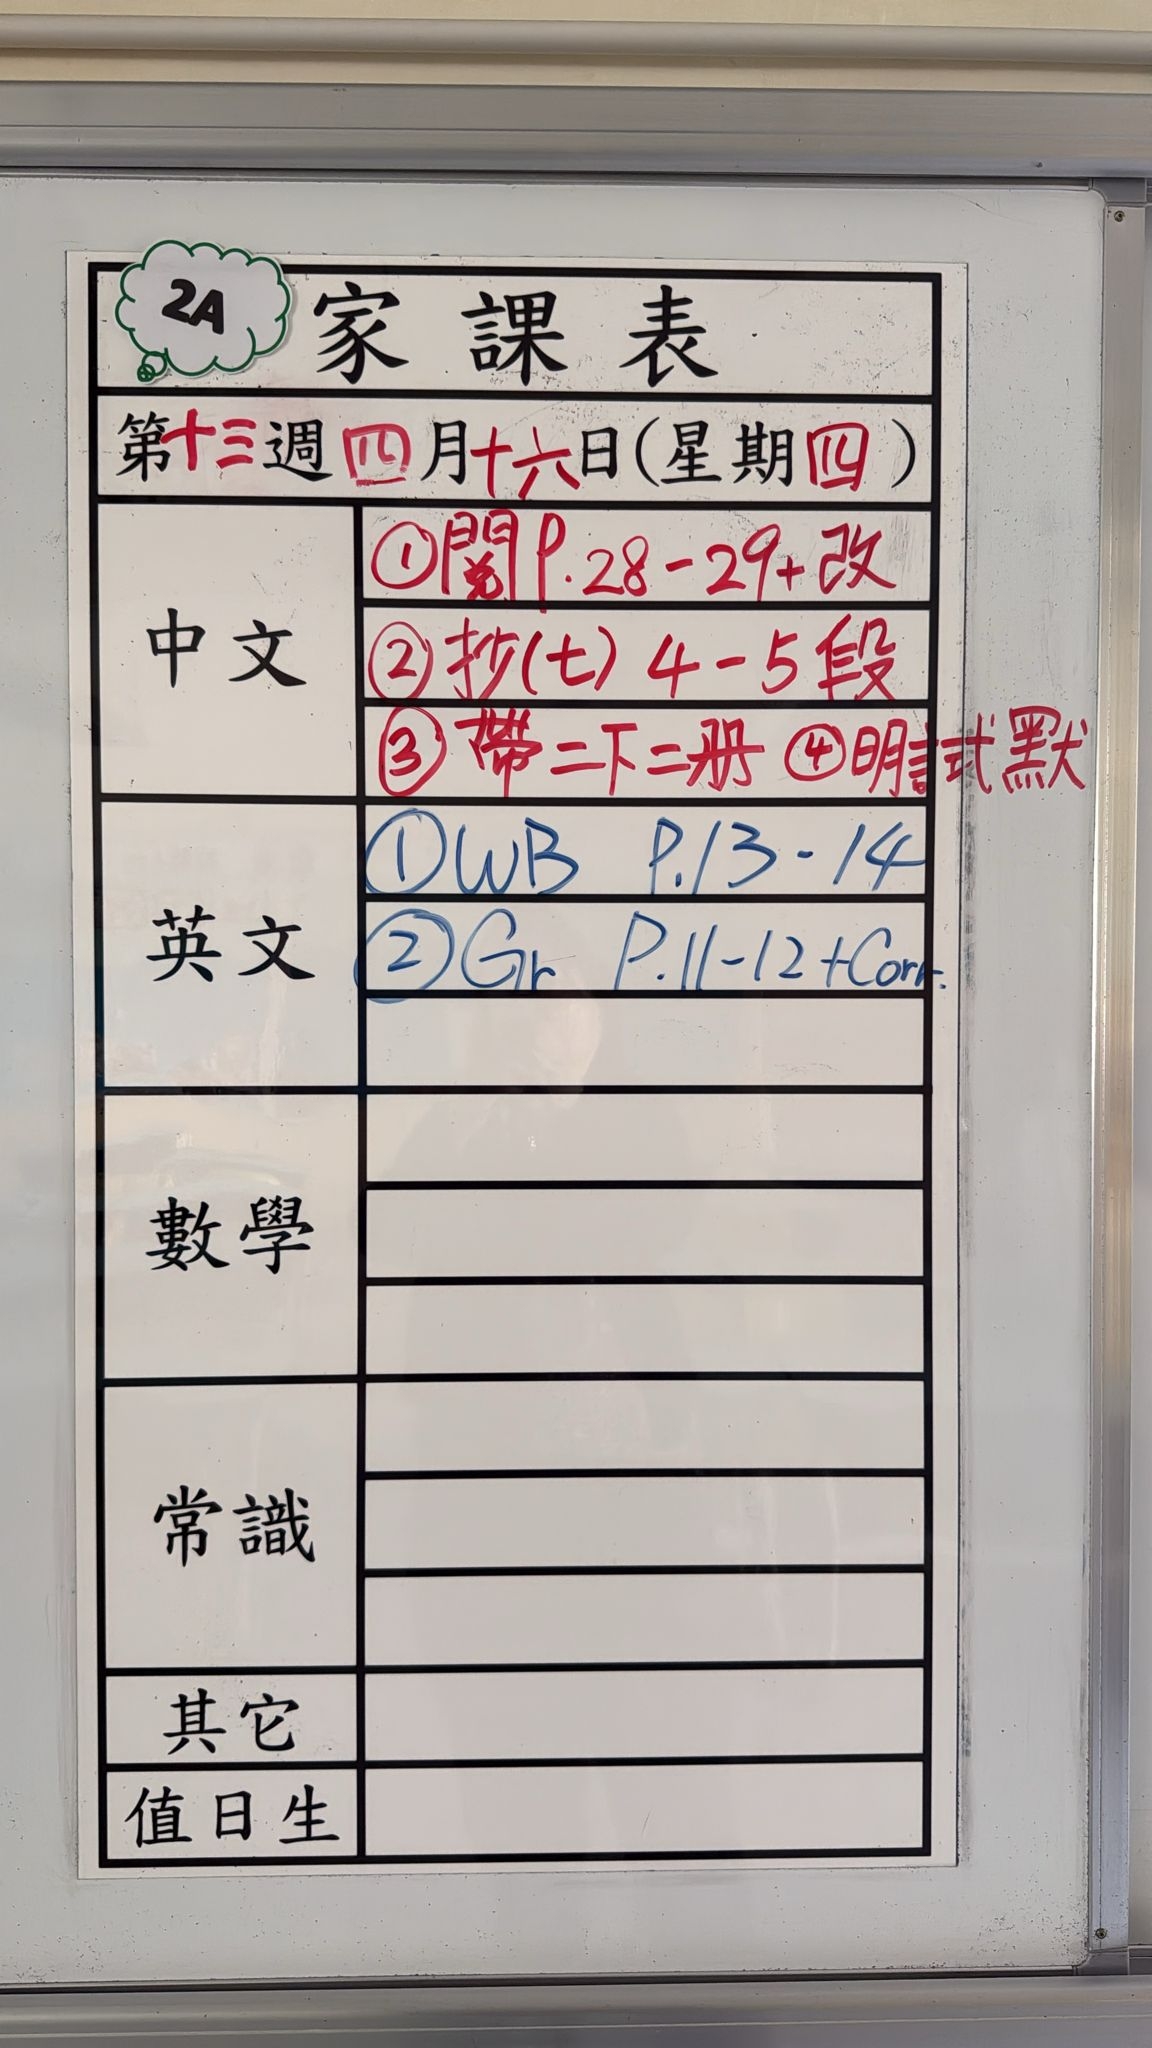 2A
家課表
第十三週四月十六日(星期四)
中文
①閱P.28-29+改
②抄(七)4-5段
③帶二下二册 ④明試默
英文
①WB P.13-14
②Gr P.11-12+Corr.
數學
常識
其它
值日生